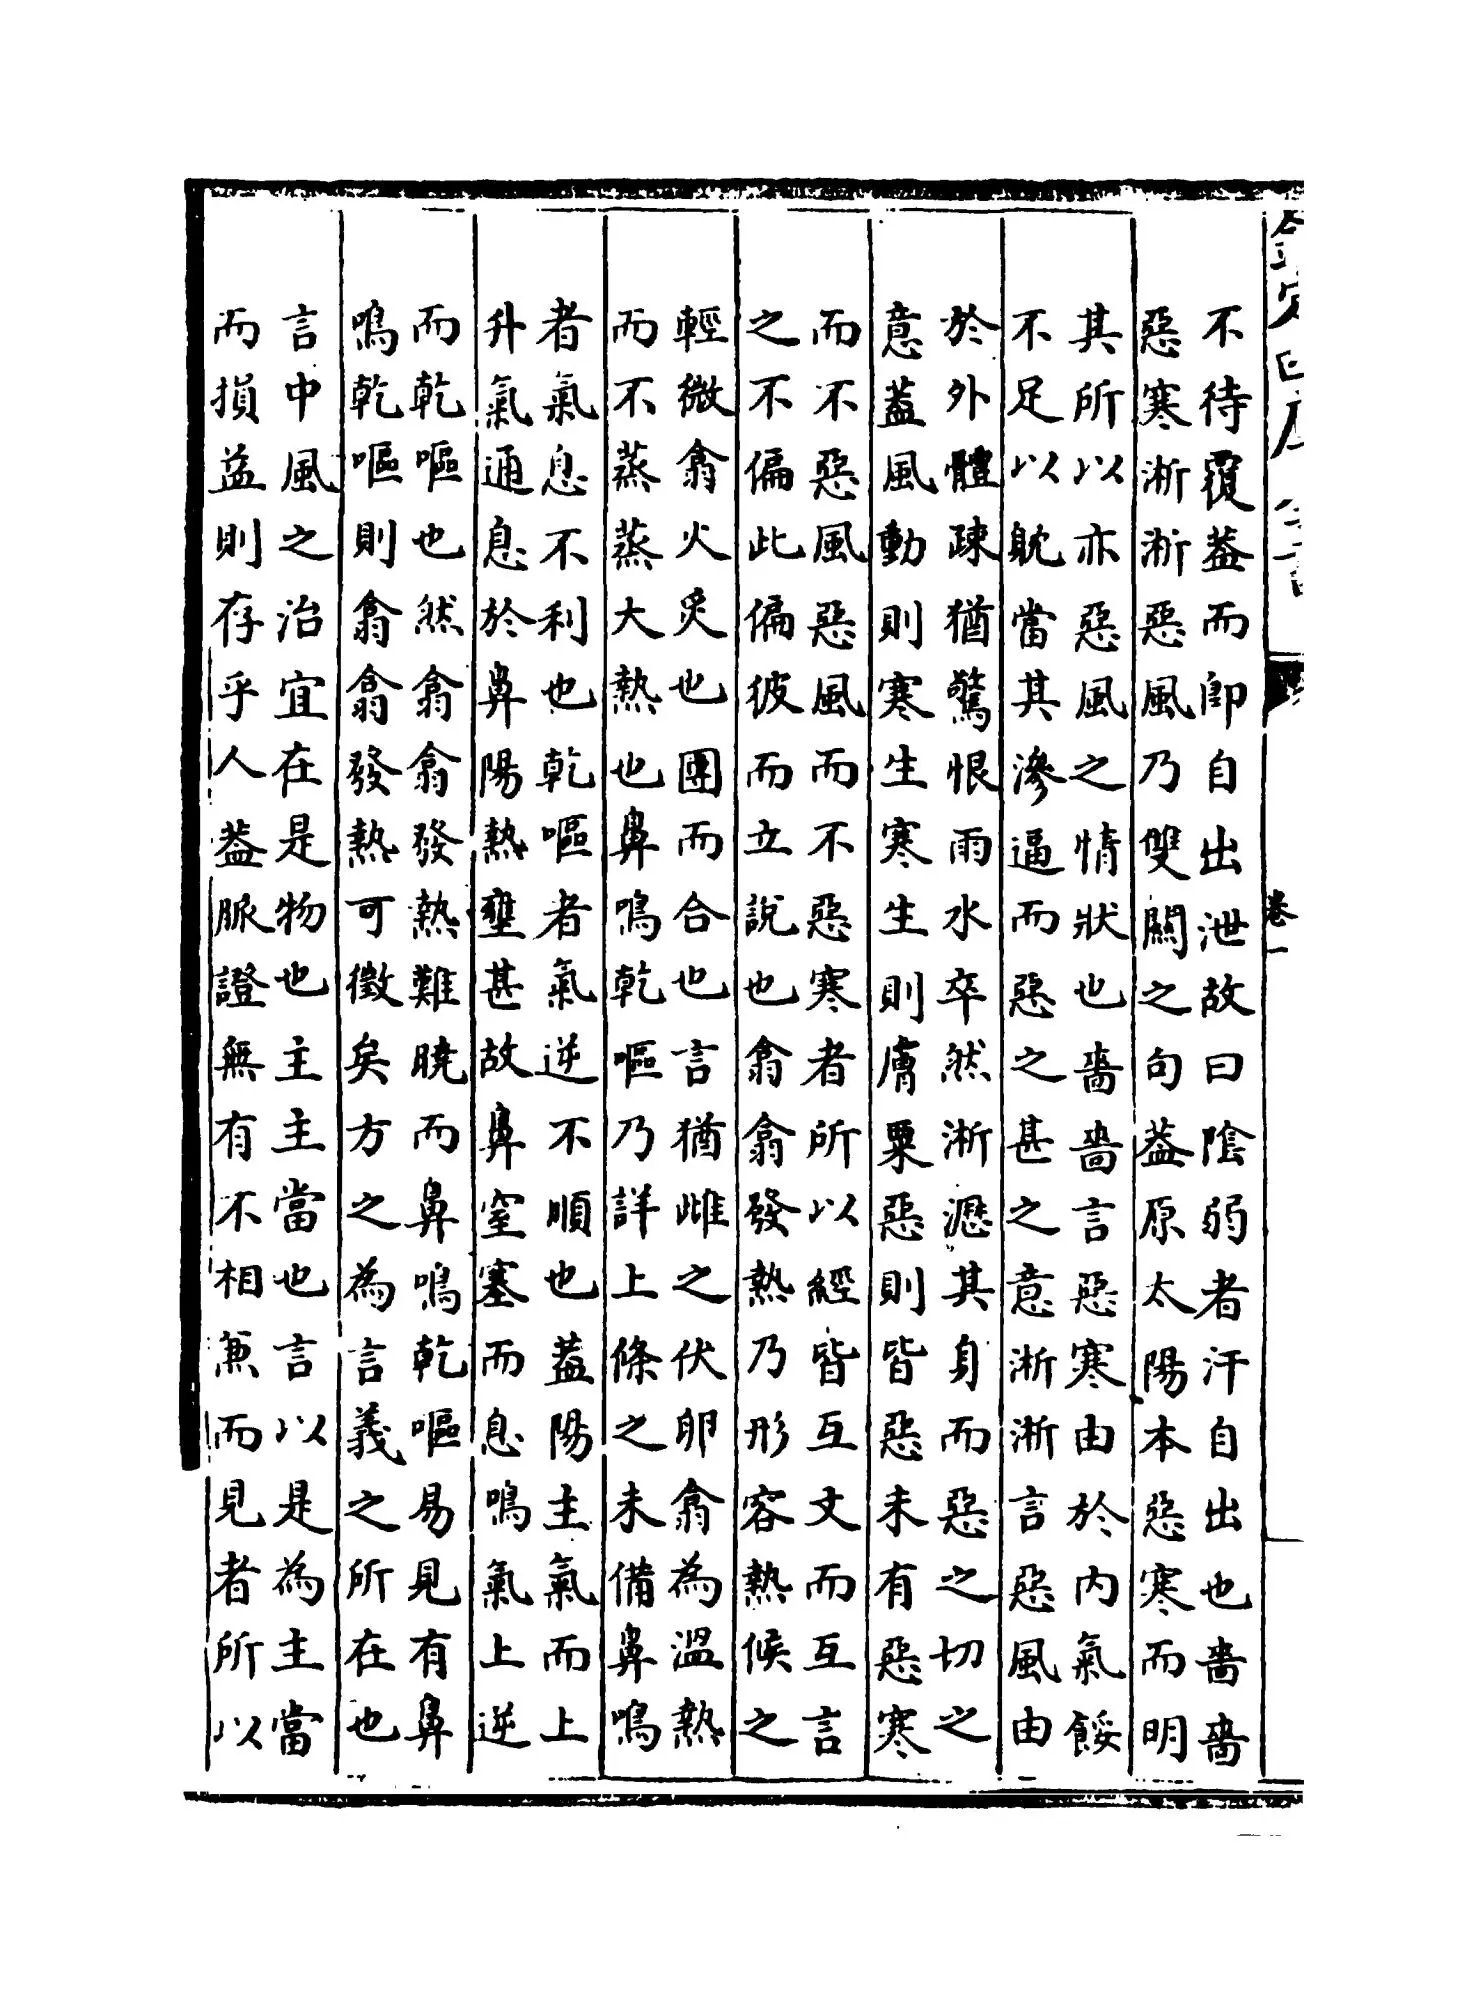 欽定四庫全書
卷一
不待覆葢而即自出泄故曰陰弱者汗自出也嗇嗇
惡寒淅淅惡風乃雙關之句葢原太陽本惡寒而明
其所以亦惡風之情狀也嗇嗇言惡寒由於内氣餒
不足以躭當其滲逼而惡之甚之意淅淅言惡風由
於外體疎猶驚恨雨水卒然淅瀝其身而惡之切之
意葢風動則寒生寒生則膚粟惡則皆惡未有惡寒
而不惡風惡風而不惡寒者所以經皆互文而互言
之不偏此偏彼而立說也翕翕發熱乃形容熱候之
輕微翕火炙也團而合也言猶雌之伏卵翕為溫熱
而不蒸蒸大熱也鼻鳴乾嘔乃詳上條之未備鼻鳴
者氣息不利也乾嘔者氣逆不順也葢陽主氣而上
升氣通息於鼻陽熱壅甚故鼻窒塞而息鳴氣上逆
而乾嘔也然翕翕發熱難曉而鼻鳴乾嘔易見有鼻
鳴乾嘔則翕翕發熱可徵矣方之為言義之所在也
言中風之治宜在是物也主主當也言以是為主當
而損益則存乎人葢脈證無有不相兼而見者所以